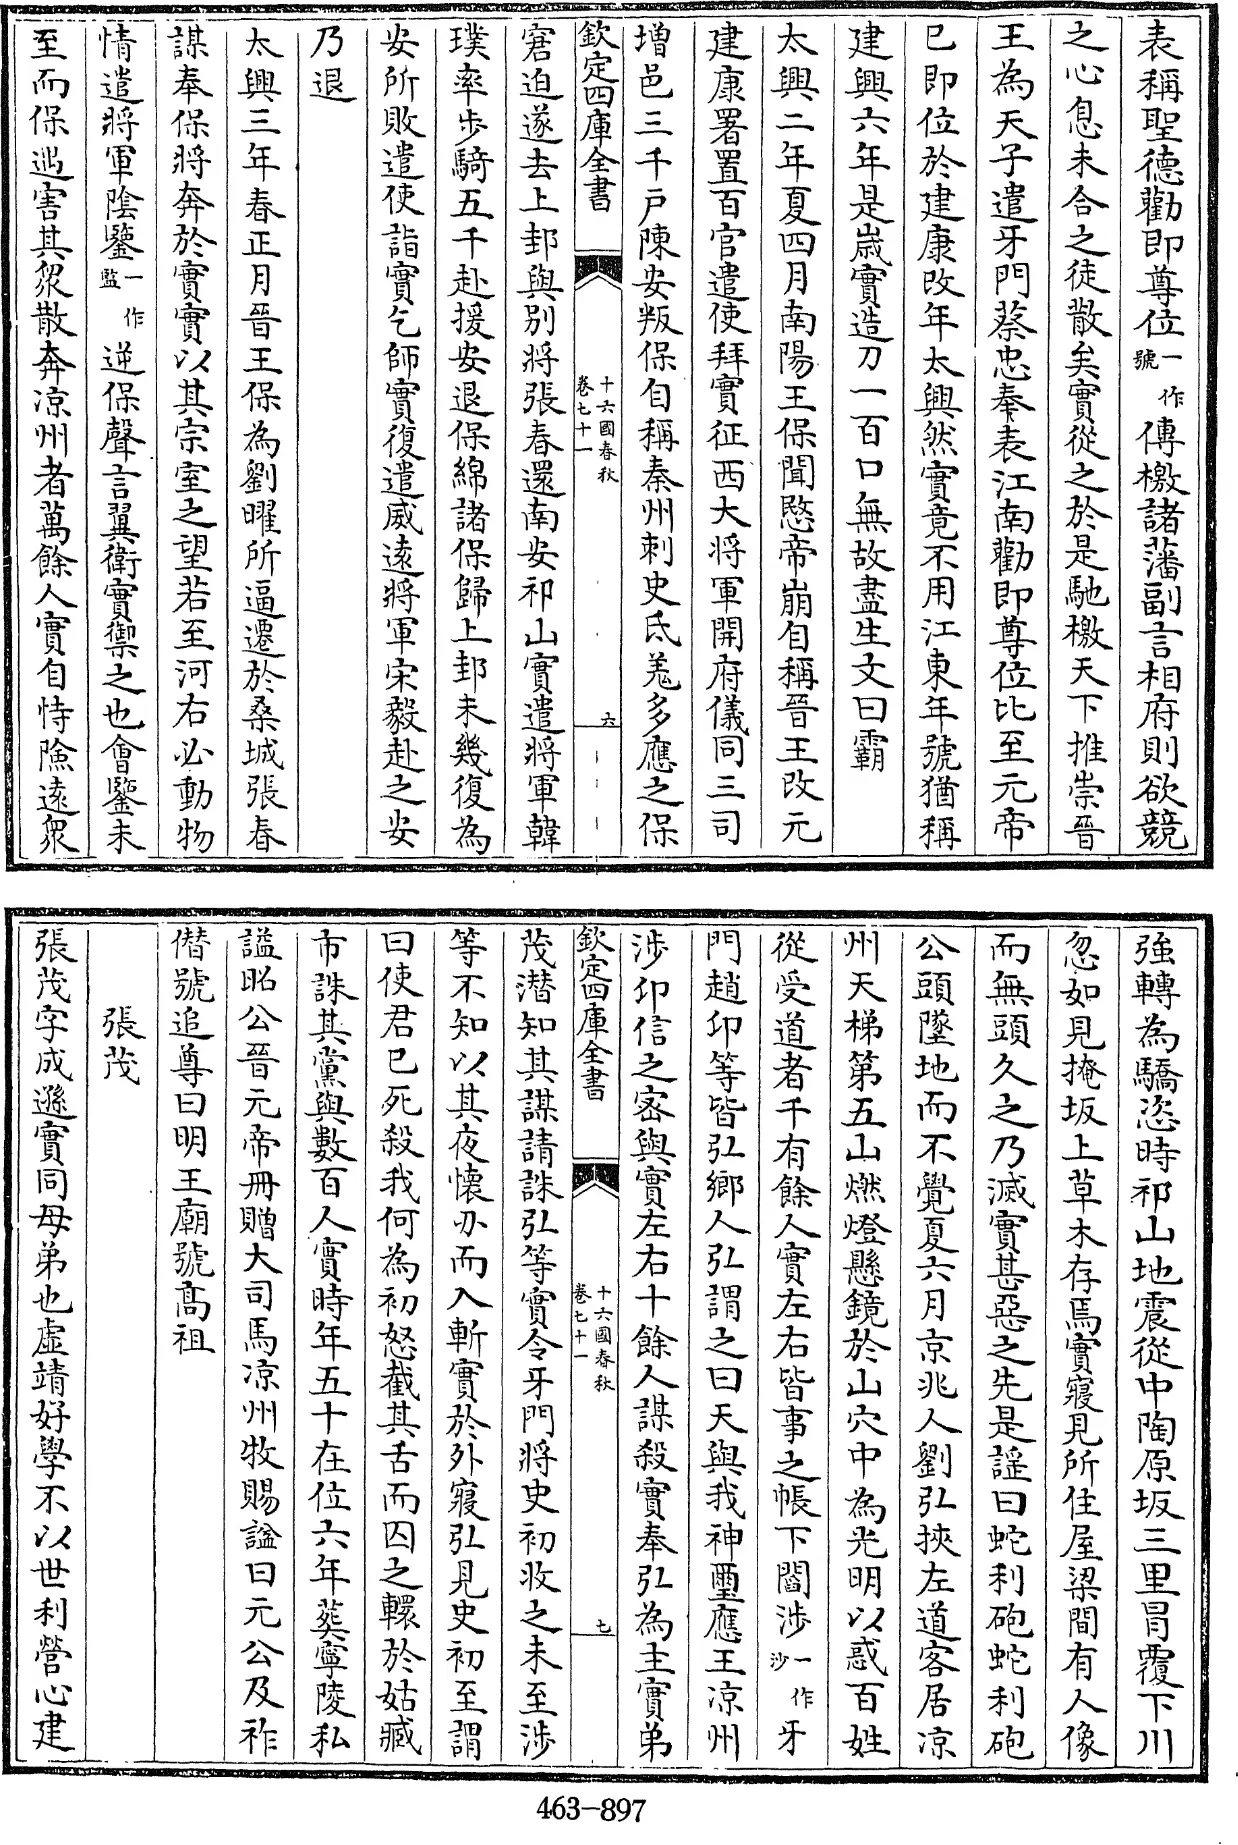 表稱聖德勸即尊位一作號傳檄諸藩副言相府則欲競
之心息未合之徒散矣實從之於是馳檄天下推崇晉
王為天子遣牙門蔡忠奉表江南勸即尊位比至元帝
已即位於建康改年太興然實竟不用江東年號猶稱
建興六年是歲實造刀一百口無故盡生文曰霸
太興二年夏四月南陽王保聞愍帝崩自稱晉王改元
建康署置百官遣使拜實征西大將軍開府儀同三司
增邑三千戶陳安叛保自稱秦州刺史氐羌多應之保
欽定四庫全書
十六國春秋
卷七十一
六
窘迫遂去上邽與別將張春還南安祁山實遣將軍韓
璞率步騎五千赴援安退保綿諸保歸上邽未幾復為
安所敗遣使詣實乞師實復遣威遠將軍宋毅赴之安
乃退
太興三年春正月晉王保為劉曜所逼遷於桑城張春
謀奉保將奔於實實以其宗室之望若至河右必動物
情遣將軍陰鑒一作監逆保聲言翼衛實禦之也會鑒未
至而保遇害其衆散奔凉州者萬餘人實自恃險遠衆
強轉為驕恣時祁山地震從中陶原坂三里冒覆下川
忽如見掩坂上草木存焉實寢見所住屋梁間有人像
而無頭久之乃滅實甚惡之先是謡曰蛇利砲蛇利砲
公頭墜地而不覺夏六月京兆人劉弘挾左道客居凉
州天梯第五山燃燈懸鏡於山穴中為光明以惑百姓
從受道者千有餘人實左右皆事之帳下閻涉一作沙牙
門趙卬等皆弘鄉人弘謂之曰天與我神璽應王凉州
涉卬信之密與實左右十餘人謀殺實奉弘為主實弟
欽定四庫全書
十六國春秋
卷七十一
七
茂潛知其謀請誅弘等實令牙門將史初收之未至涉
等不知以其夜懷刃而入斬實於外寢弘見史初至謂
曰使君已死殺我何為初怒截其舌而囚之轘於姑臧
市誅其黨與數百人實時年五十在位六年葬寧陵私
謚昭公晉元帝冊贈大司馬凉州牧賜謚曰元公及祚
僭號追尊曰明王廟號髙祖
張茂
張茂字成遜實同母弟也虛靖好學不以世利營心建
463-897